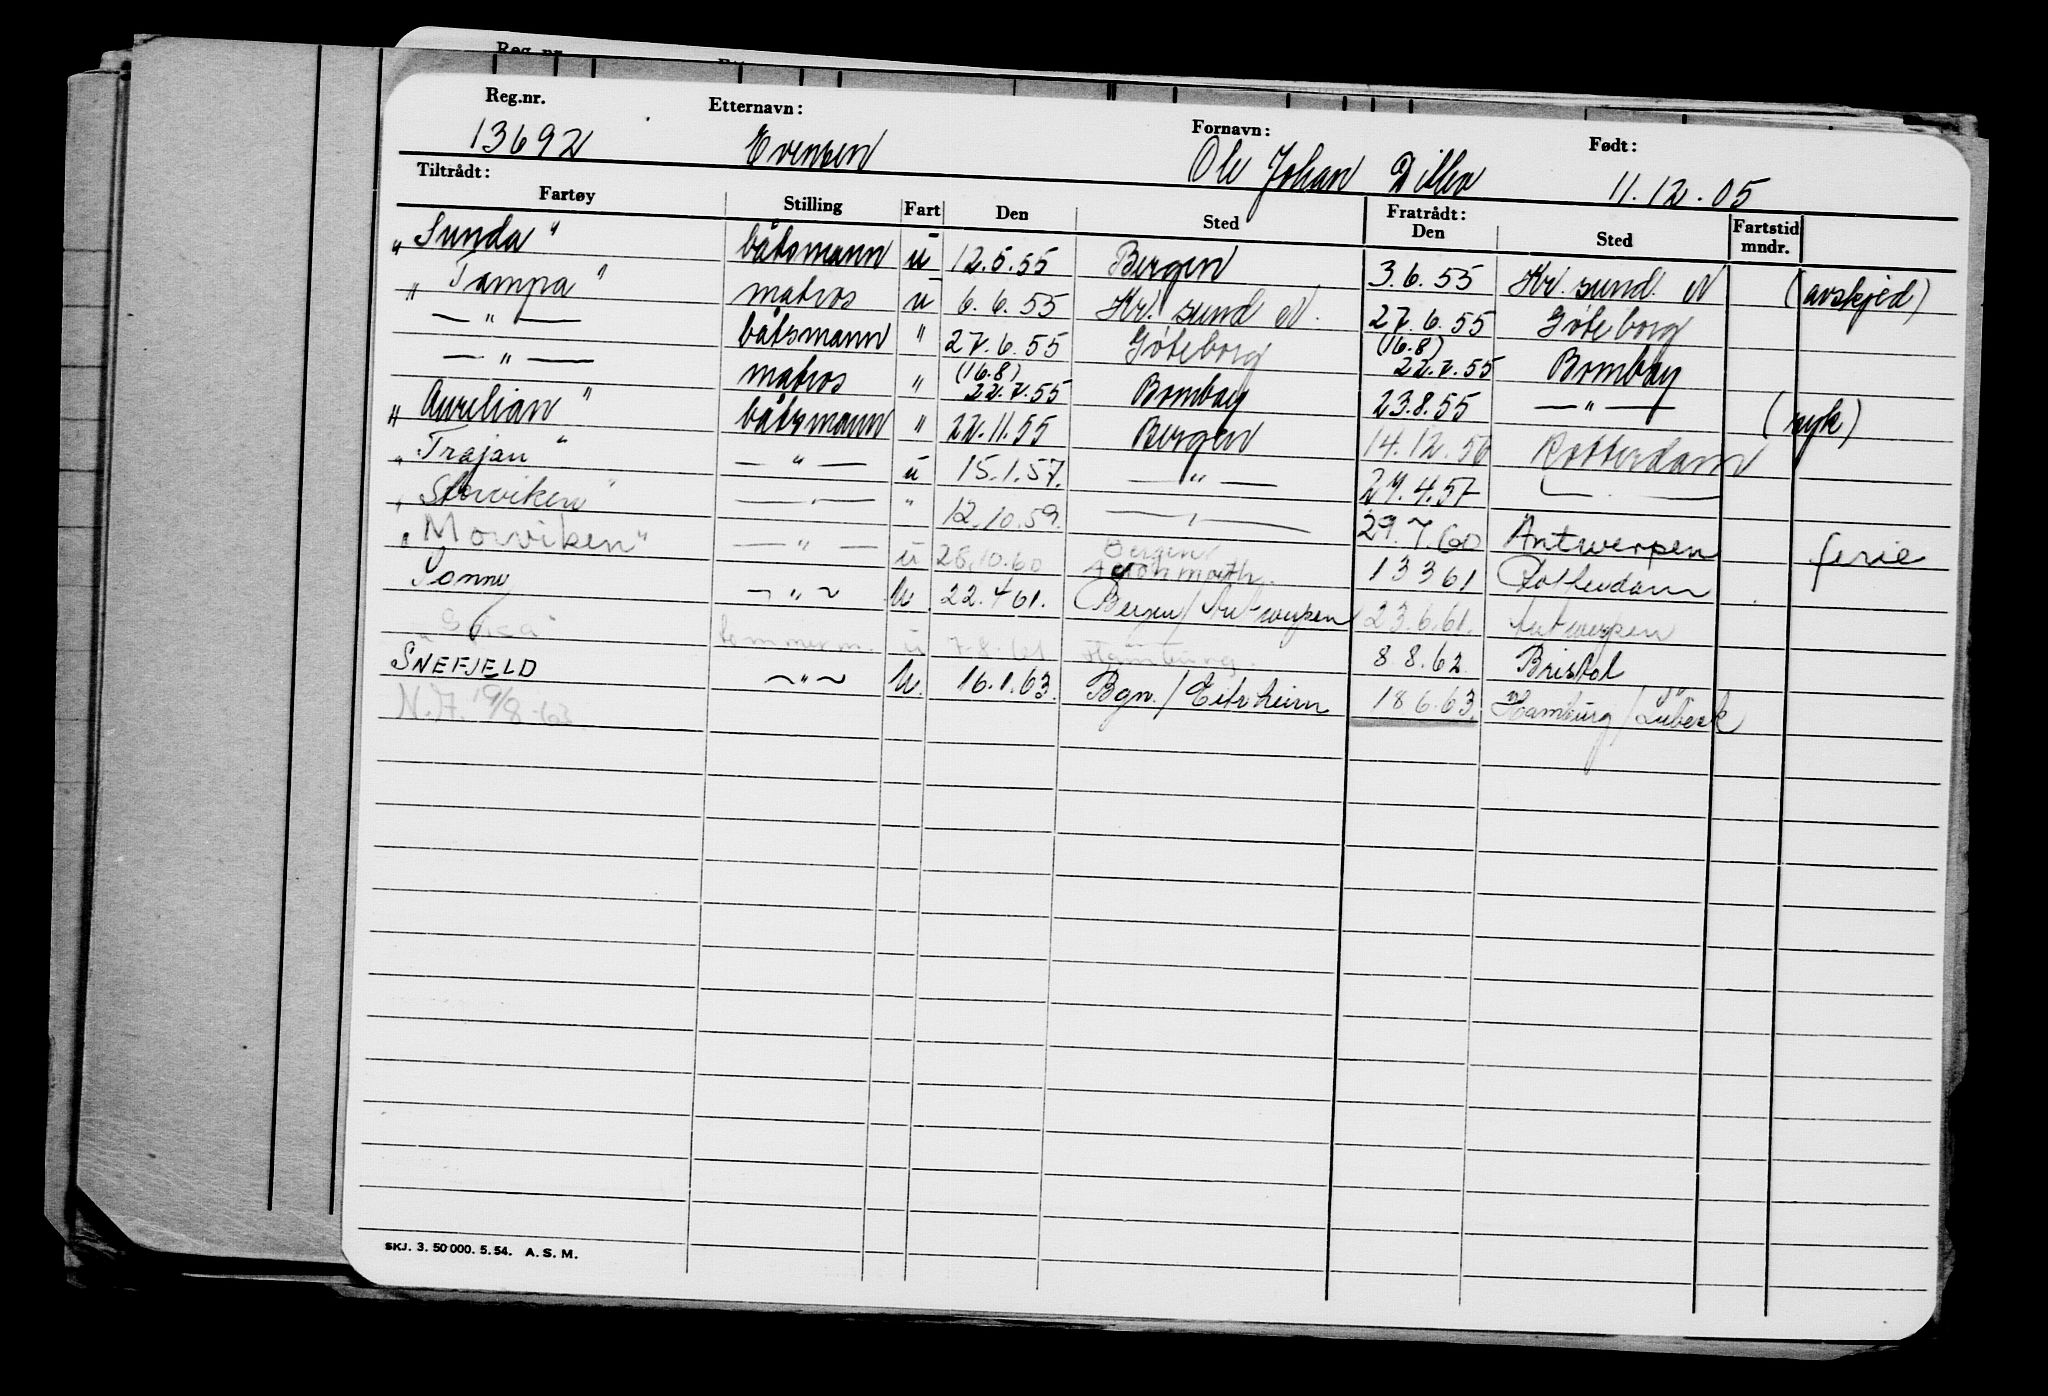 Reg.nr.
Reg.nr. Etternavn: Fornavn: Født:
13692 Evensen Ole Johan 11.12.05
Tiltrådt: Fratrådt:
Fartøy Stilling Fart Den Sted Den Sted Fartstid mndr.
"Sunda" båtsmann u 12.5.55 Bergen 3.6.55 Kr. sund. N (avskjed)
"Tampa" matros u 6.6.55 Kr. sund N. 27.6.55 Göteborg
— " — båtsmann " 27.6.55 Göteborg (16.8) 22.7.55 Bombay
— " — matros " (16.8) 22.7.55 Bombay 23.8.55 — " — (syk)
"Aurelian" båtsmann " 22.11.55 Bergen 14.12.56 Rotterdam
"Trajan" — " — u 15.1.57. — " — 29.4.57 — " —
"Storviken" — " — " 12.10.59. — " — 29.7.60 Antwerpen ferie
"Morviken" — " — u 26.10.60 Bergen 13 3 61 Rotterdam
Sonny — " — U. 22.4 61. Bergen/Antwerpen 23.6.61. Antwerpen
tømmerm. u 7.8.61 Hamburg. 8.8.62. Bristol
SNEFJELD — " — U. 16.1.63. Bgn./Eitrheim 18.6.63. Hamburg/Lübeck
N.F. 19/8-63
SKJ. 3. 50 000. 5. 54. A. S. M.